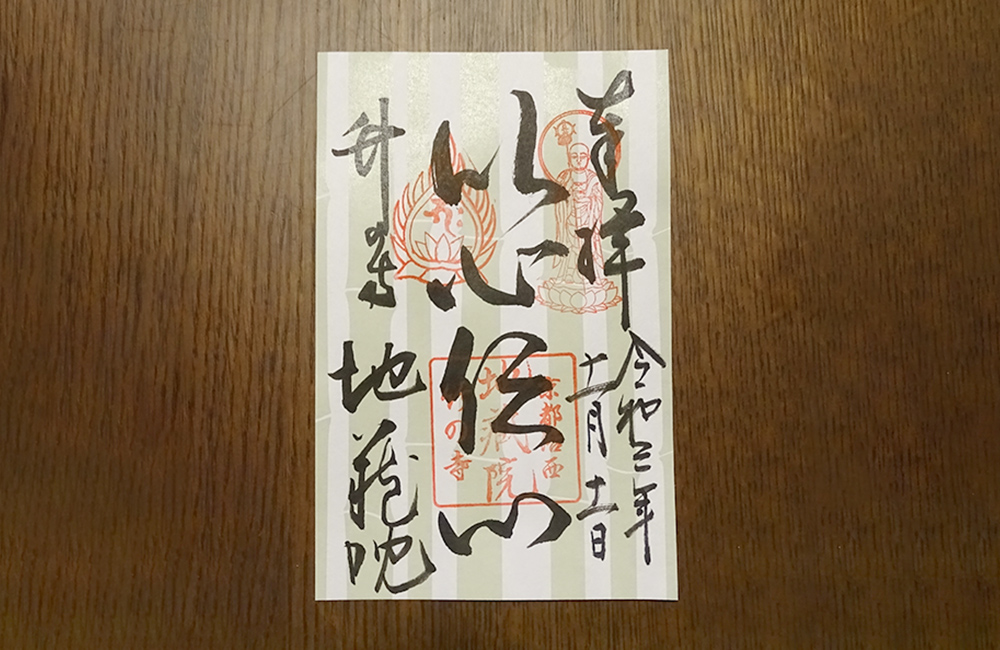 奉拝
令和三年
十一月十一日
以心伝心
竹の寺
地蔵院
京都洛西
地蔵院
竹の寺